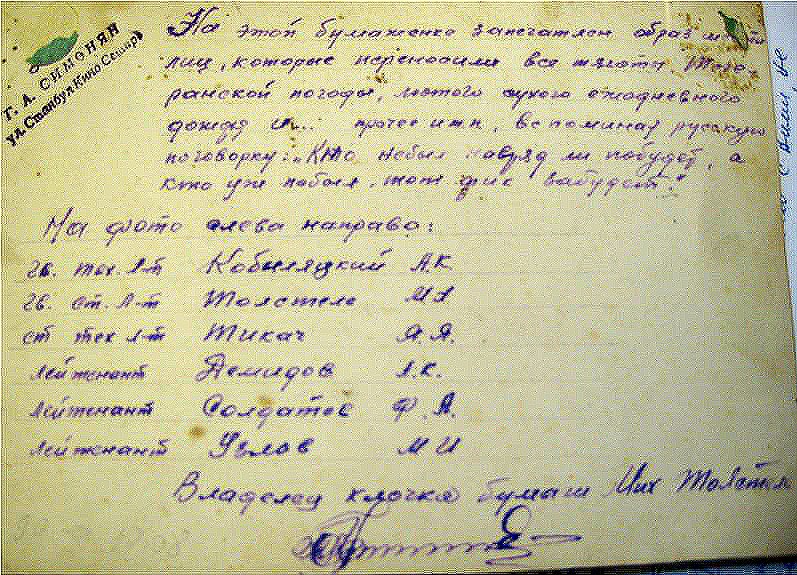 Т. А. СИМОНЯН
ул. Стамбул Кино Сепир
На этой бумаженке запечатлен образ
лиц, которые переносили все тяготы Теге-
ранской погоды, лютого сухого ежедневного
дождя и... прочее и т.п., вспоминая русскую
поговорку: „Кто небыл навряд ли побудет, а
кто уже побыл, тот фиг забудет."
На фото слева направо:
гв. тех. л-т Кобыляцкий А.К
гв. ст. л-т Толстель М
ст тех л-т Ткач А.Я.
лейтенант Демидов А.К.
лейтенант Солдатов Ф.А.
лейтенант Углов М И
Владелец клочка бумаш Мих Толстель